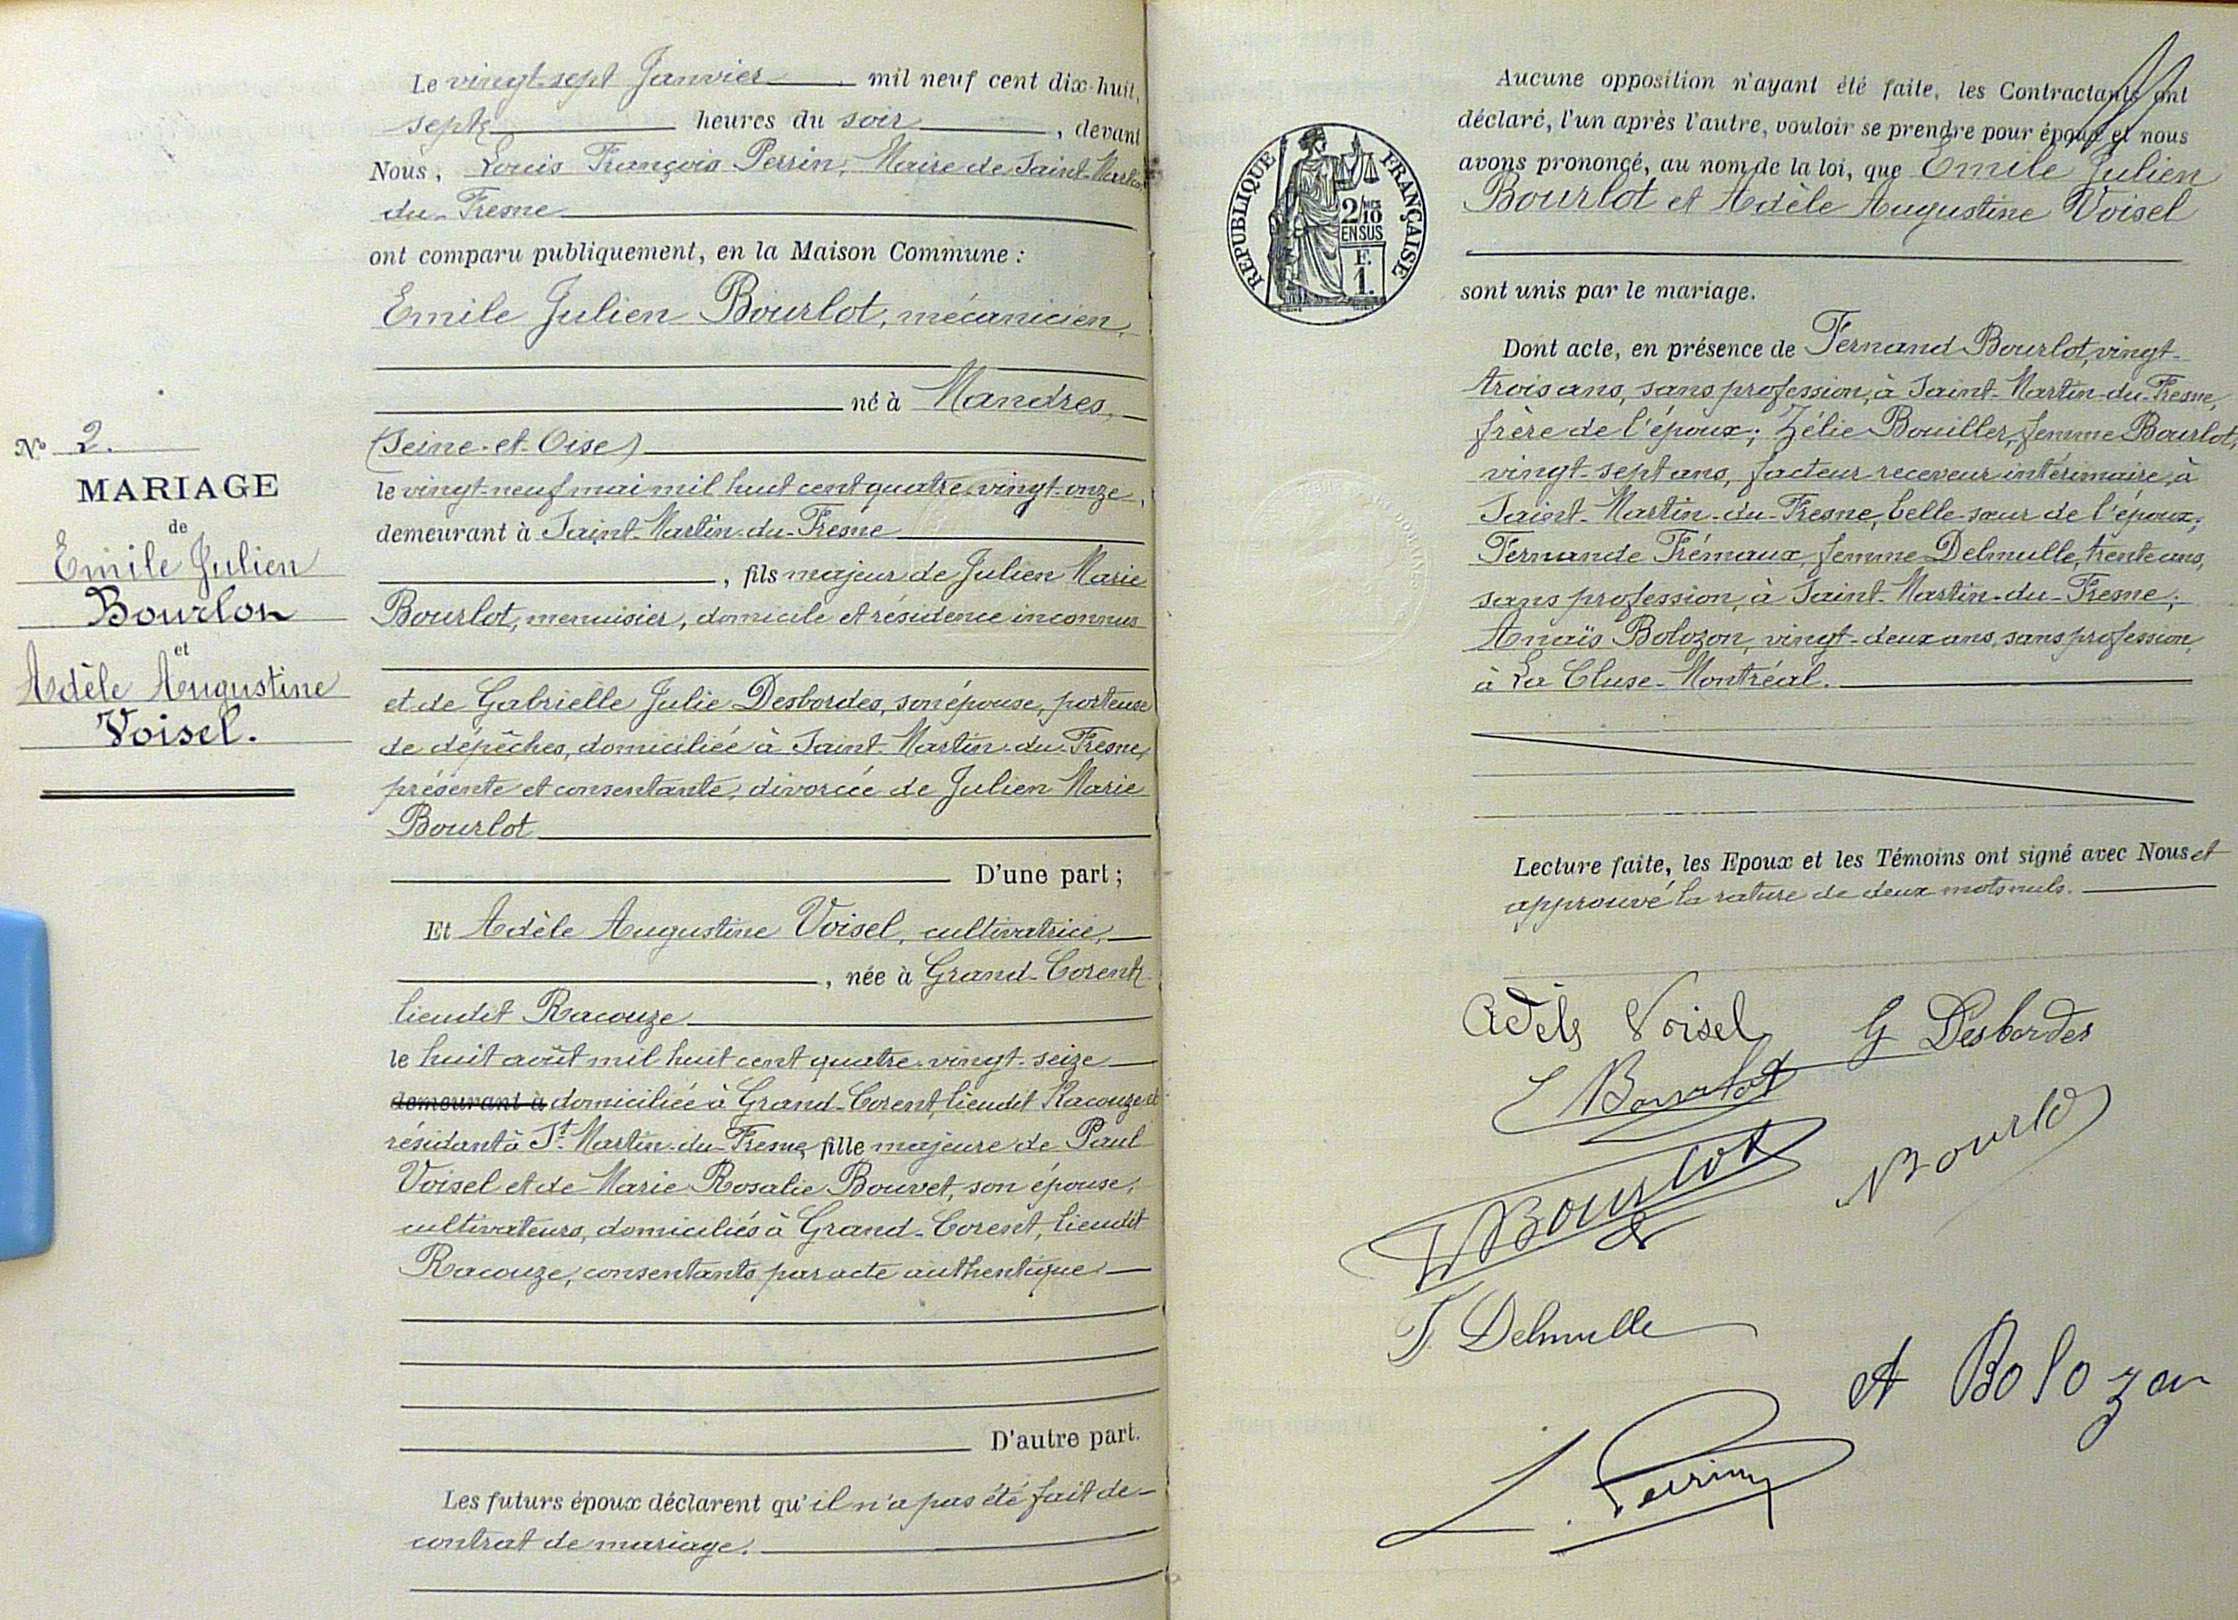 Le vingt-sept Janvier mil neuf cent dix-huit,
sept heures du soir, devant
Nous, Louis François Perrin, Maire de Saint-Martin
du-Fresne
ont comparu publiquement, en la Maison Commune :
Emile Julien Bourlot, mécanicien,
né à Mandres,
(Seine-et-Oise)
le vingt-neuf mai mil huit cent quatre-vingt-onze,
demeurant à Saint-Martin-du-Fresne
, fils majeur de Julien Marie
Bourlot, menuisier, domicile et résidence inconnus
et de Gabrielle Julie Desbordes, son épouse, porteuse
de dépêches, domiciliée à Saint-Martin-du-Fresne,
présente et consentante, divorcée de Julien Marie
Bourlot
D'une part ;
Et Adèle Augustine Voisel, cultivatrice,
, née à Grand-Corent
lieudit Racouze
le huit août mil huit cent quatre-vingt-seize
demeurant à domiciliée à Grand-Corent, lieudit Racouze et
résidant à St-Martin-du-Fresne, fille majeure de Paul
Voisel et de Marie Rosalie Bouvet, son épouse,
cultivateurs, domiciliés à Grand-Corent, lieudit
Racouze, consentants par acte authentique
D'autre part.
Les futurs époux déclarent qu'il n'a pas été fait de
contrat de mariage.
No 2.
MARIAGE
de
Emile Julien
Bourlot
et
Adèle Augustine
Voisel.
Aucune opposition n'ayant été faite, les Contractants ont
déclaré, l'un après l'autre, vouloir se prendre pour époux et nous
avons prononcé, au nom de la loi, que Emile Julien
Bourlot et Adèle Augustine Voisel
sont unis par le mariage.
REPUBLIQUE FRANÇAISE
2/10
EN SUS
F.
1.
Dont acte, en présence de Fernand Bourlot, vingt-
trois ans, sans profession, à Saint-Martin-du-Fresne,
frère de l'époux ; Zélie Bouiller, femme Bourlot,
vingt-sept ans, facteur-receveur intérimaire, à
Saint-Martin-du-Fresne, belle-sœur de l'époux ;
Fernande Frémaux, femme Delmulle, trente ans,
sans profession, à Saint-Martin-du-Fresne ;
Anaïs Bolozon, vingt-deux ans, sans profession,
à La Cluse-Montréal.
Lecture faite, les Epoux et les Témoins ont signé avec Nous et
approuvé la rature de deux mots nuls.
Adèle Voisel G Desbordes
E Bourlot
Bourlot
Bourlot
F. Delmulle
A Bolozon
L. Perrin